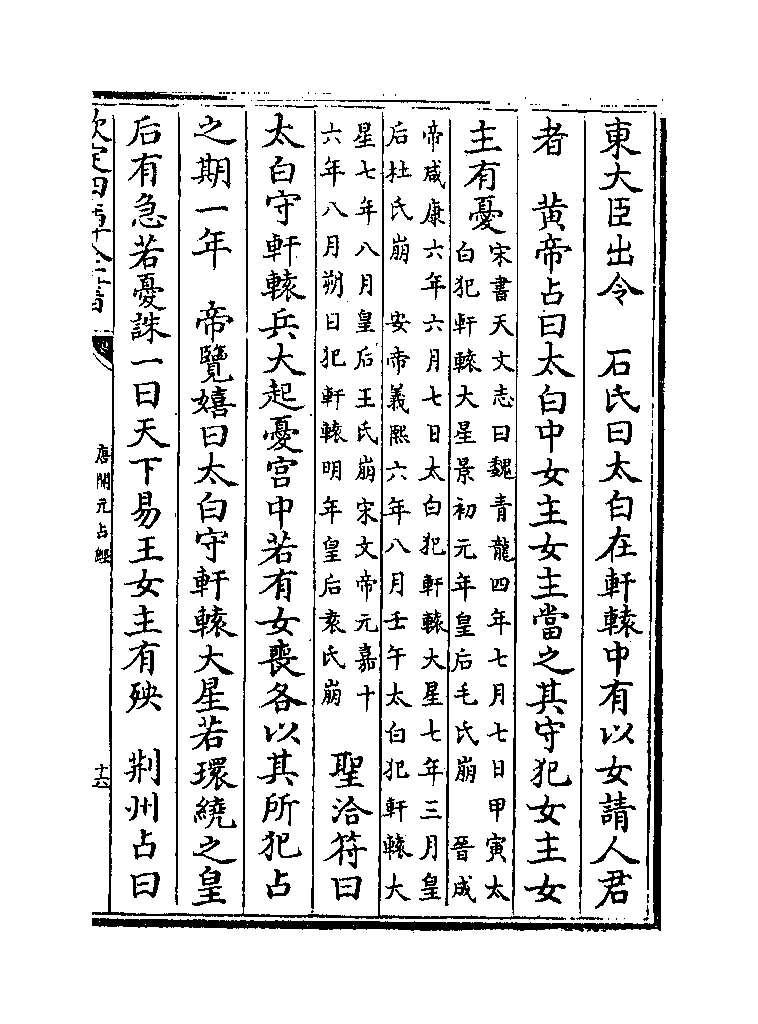 東大臣出令　石氏曰太白在軒轅中有以女請人君
者　黄帝占曰太白中女主女主當之其守犯女主女
主有憂
宋書天文志曰魏青龍四年七月七日甲寅太
白犯軒轅大星景初元年皇后毛氏崩　晉成
帝咸康六年六月七日太白犯軒轅大星七年三月皇
后杜氏崩　安帝義熙六年八月壬午太白犯軒轅大
星七年八月皇后王氏崩宋文帝元嘉十
六年八月朔日犯軒轅明年皇后袁氏崩
聖洽符曰
太白守軒轅兵大起憂宫中若有女喪各以其所犯占
之期一年　帝覽嬉曰太白守軒轅大星若環繞之皇
后有急若憂誅一曰天下易王女主有殃　荆州占曰
欽定四庫全書
唐開元占經
十六